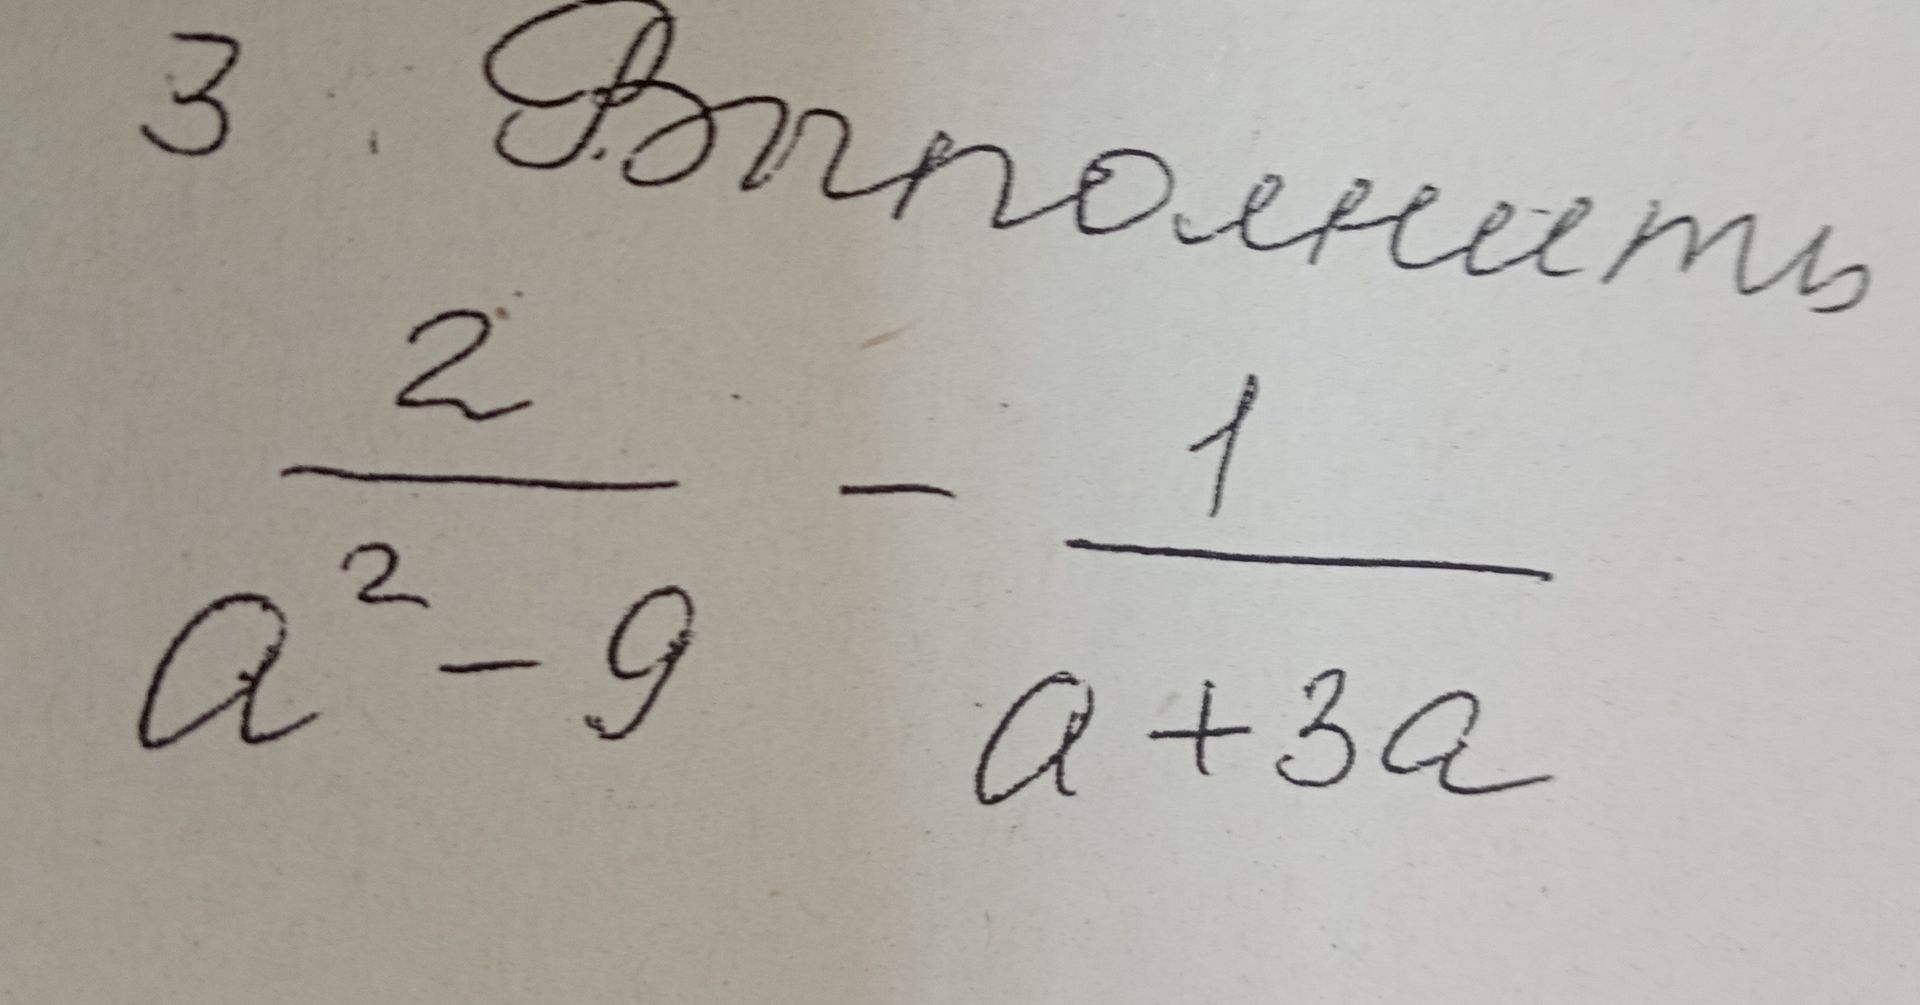 3. Выполнить
2/(a² - 9) - 1/(a + 3a)